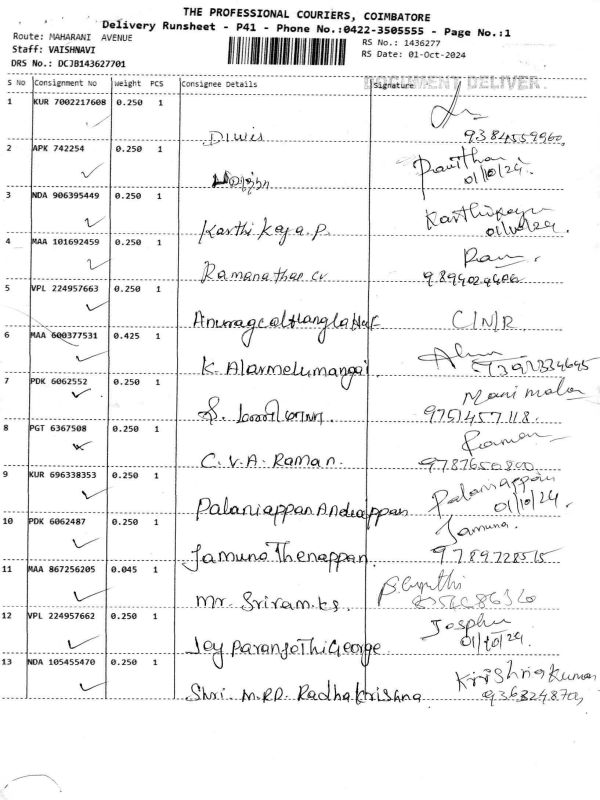 THE PROFESSIONAL COURIERS, COIMBATORE
Delivery Runsheet - P41 - Phone No.:0422-3505555 - Page No.:1
Route: MAHARANI AVENUE
RS No.: 1436277
Staff: VAISHNAVI
RS Date: 01-Oct-2024
DRS No.: DCJB143627701
DOCUMENT DELIVER
S No Consignment No weight PCS Consignee Details Signature
1 KUR 7002217608 0.250 1
9384559960
2 APK 742254 0.250 1
Pavithan
01/10/24.
3 NDA 906395449 0.250 1 Karthikeya.P. Karthikeyan
01/10/24.
4 MAA 101692459 0.250 1 Ramanathan cv Ram
5 VPL 224957663 0.250 1 C/N/R
6 MAA 600377531 0.425 1 K. Alarmelumangai
7 PDK 6062552 0.250 1 Manimala
9751457118.
8 PGT 6367508 0.250 1 C.V.A. Raman. Raman
9787650800
9 KUR 696338353 0.250 1 Palaniappan Andiappan Palaniappan
01/10/24.
10 PDK 6062487 0.250 1 Jamuna Thenappan Jamuna.
9789728515
11 MAA 867256205 0.045 1 Mr. Sriram.ks.
12 VPL 224957662 0.250 1 Joy Paranjothi George
01/10/24
13 NDA 105455470 0.250 1 Shri M.RD. Radhakrishna Krishnakumar